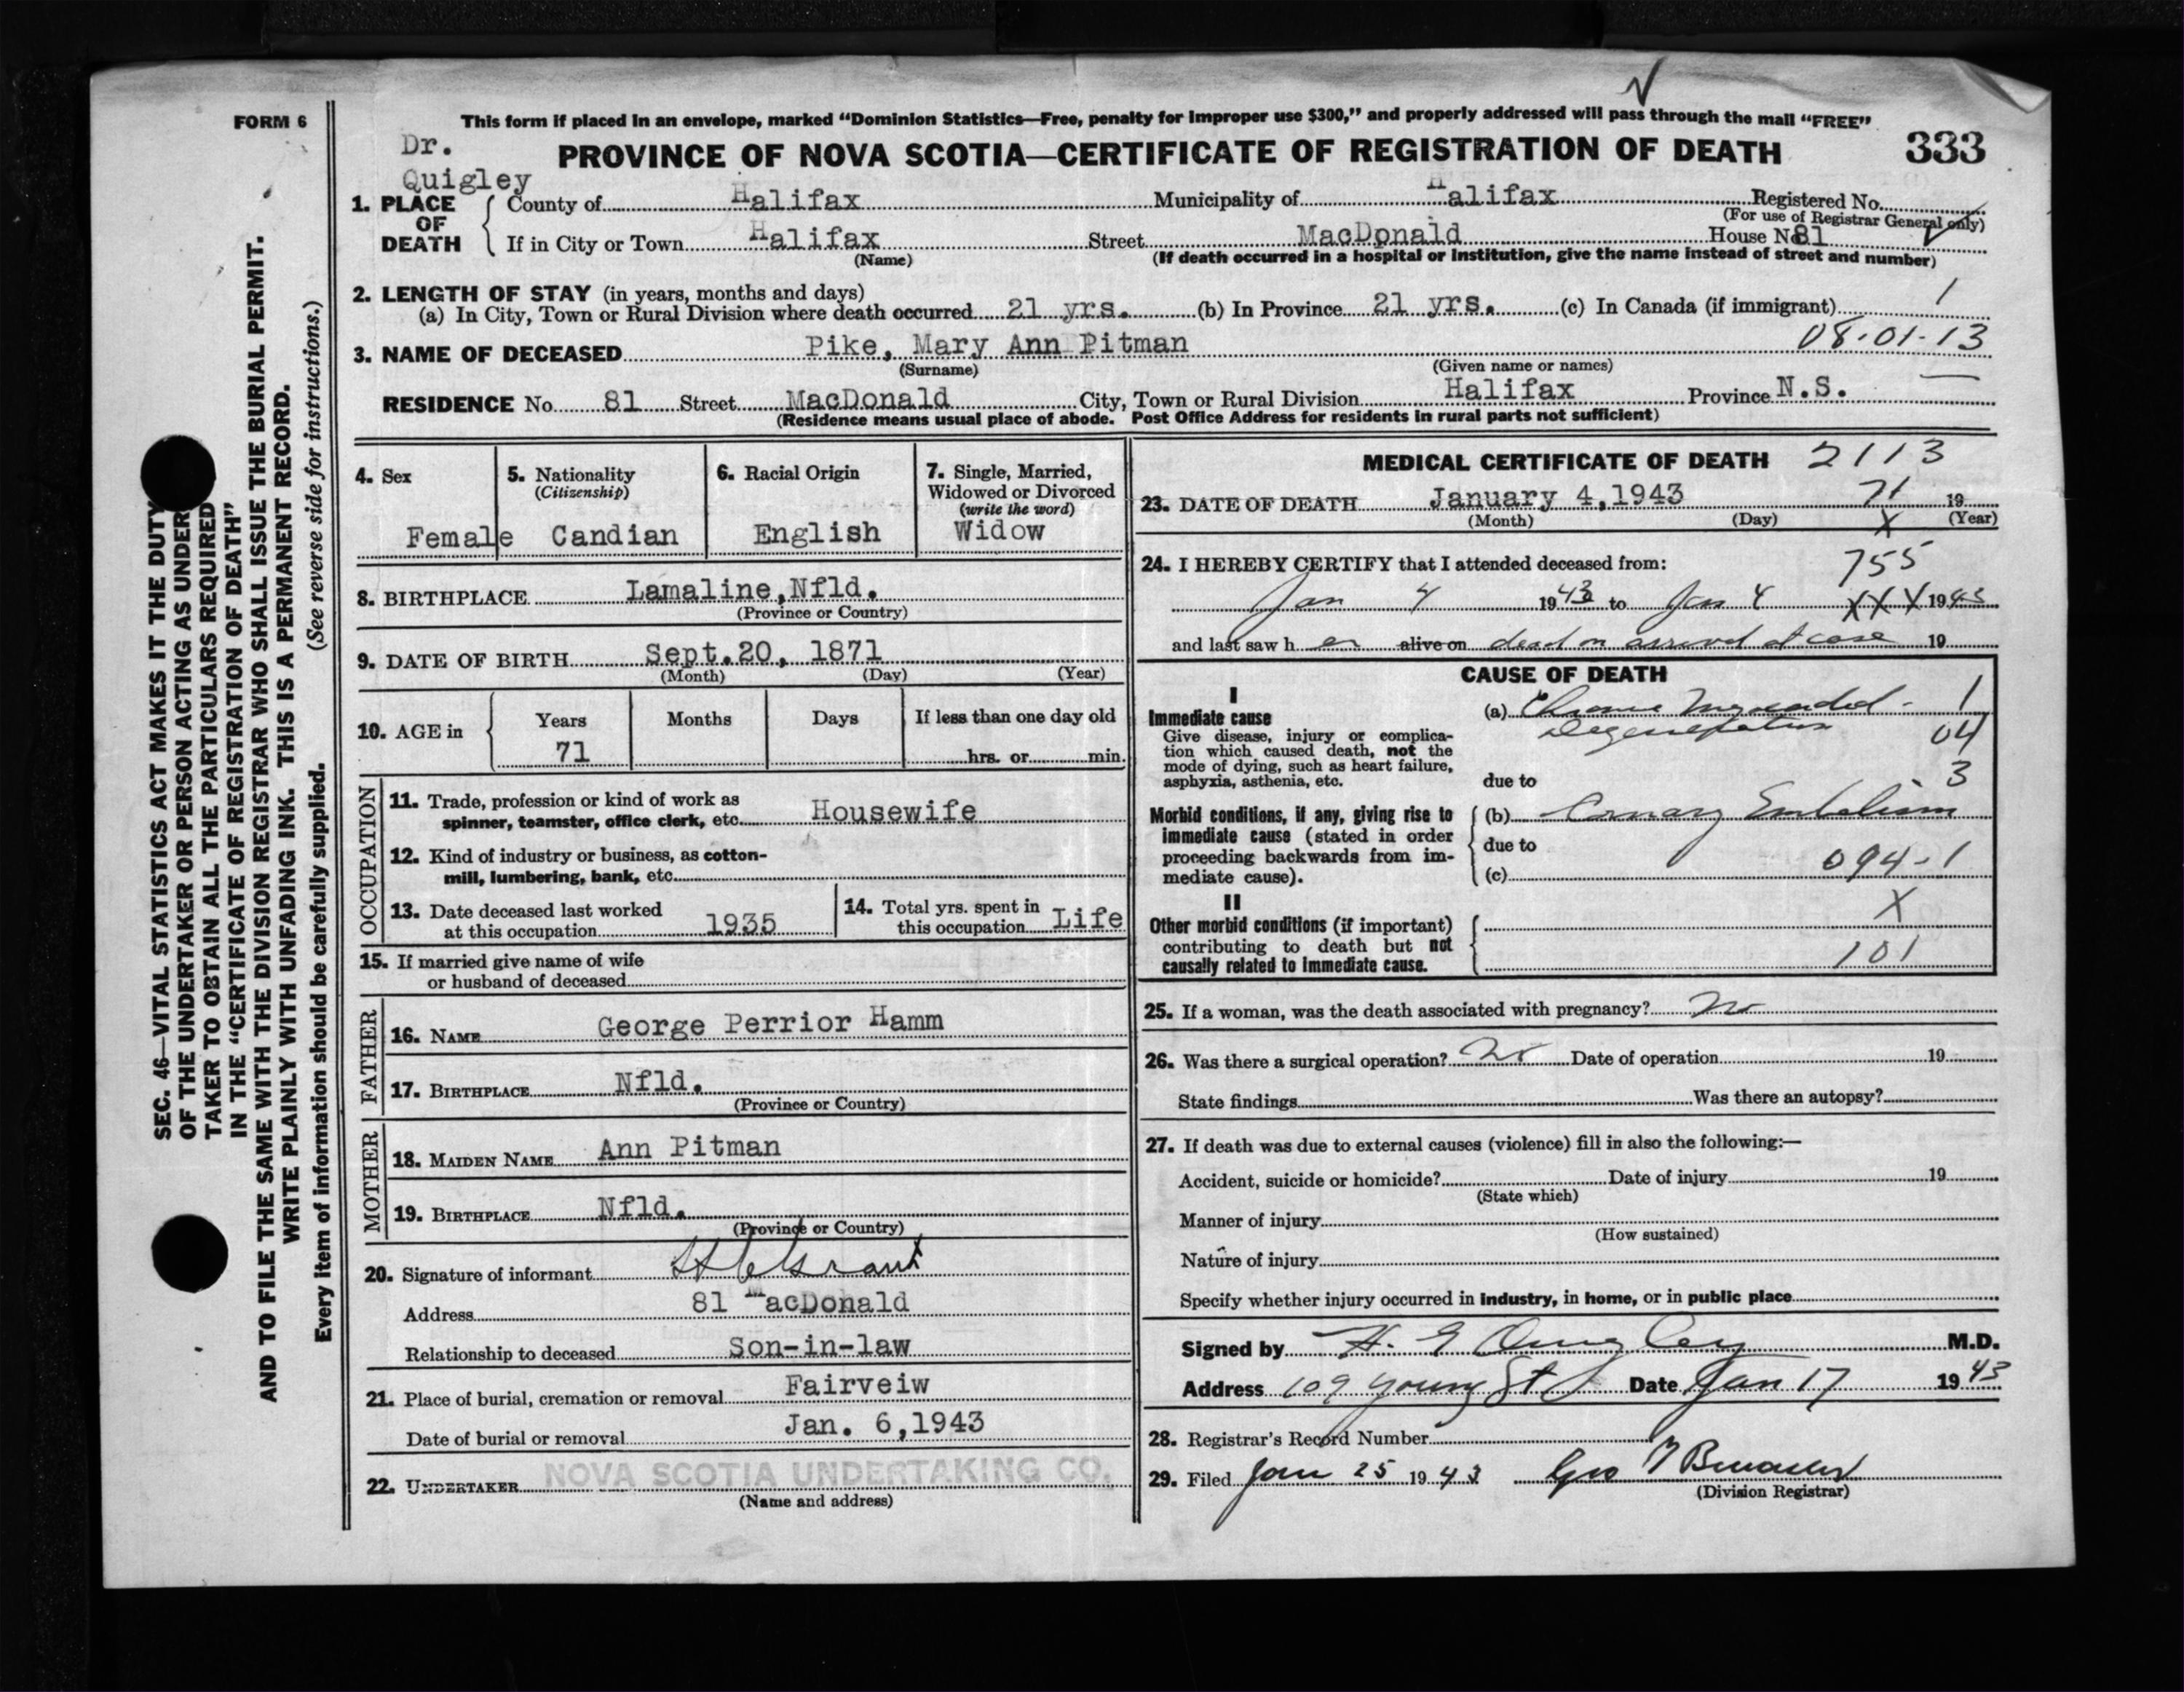 FORM 6
This form if placed in an envelope, marked “Dominion Statistics—Free, penalty for improper use $300,” and properly addressed will pass through the mail “FREE”
Dr.
Quigley
PROVINCE OF NOVA SCOTIA—CERTIFICATE OF REGISTRATION OF DEATH 333
1. PLACE OF DEATH
County of Halifax Municipality of Halifax Registered No.
(For use of Registrar General only)
If in City or Town Halifax Street MacDonald House No. 81
(Name) (If death occurred in a hospital or institution, give the name instead of street and number)
2. LENGTH OF STAY (in years, months and days)
(a) In City, Town or Rural Division where death occurred 21 yrs. (b) In Province 21 yrs. (c) In Canada (if immigrant) 1
3. NAME OF DECEASED Pike, Mary Ann Pitman 08-01-13
(Surname) (Given name or names)
RESIDENCE No. 81 Street MacDonald City, Town or Rural Division Halifax Province N.S.
(Residence means usual place of abode. Post Office Address for residents in rural parts not sufficient)
4. Sex
Female
5. Nationality
(Citizenship)
Candian
6. Racial Origin
English
7. Single, Married,
Widowed or Divorced
(write the word)
Widow
8. BIRTHPLACE Lamaline, Nfld.
(Province or Country)
9. DATE OF BIRTH Sept. 20, 1871
(Month) (Day) (Year)
10. AGE in Years Months Days If less than one day old
71 hrs. or min.
OCCUPATION
11. Trade, profession or kind of work as
spinner, teamster, office clerk, etc. Housewife
12. Kind of industry or business, as cotton-
mill, lumbering, bank, etc.
13. Date deceased last worked
at this occupation 1935
14. Total yrs. spent in
this occupation Life
15. If married give name of wife
or husband of deceased
FATHER
16. NAME George Perrior Hamm
17. BIRTHPLACE Nfld.
(Province or Country)
MOTHER
18. MAIDEN NAME Ann Pitman
19. BIRTHPLACE Nfld.
(Province or Country)
20. Signature of informant Grant
Address 81 MacDonald
Relationship to deceased Son-in-law
21. Place of burial, cremation or removal Fairveiw
Date of burial or removal Jan. 6, 1943
22. UNDERTAKER NOVA SCOTIA UNDERTAKING CO.
(Name and address)
MEDICAL CERTIFICATE OF DEATH 2113
23. DATE OF DEATH January 4, 1943 71 19
(Month) (Day) X (Year)
24. I HEREBY CERTIFY that I attended deceased from: 755
Jan 4 1943 to Jan 4 XXX 1943
and last saw h er alive on dead on arrival at case 19
CAUSE OF DEATH
I
Immediate cause
Give disease, injury or complica-
tion which caused death, not the
mode of dying, such as heart failure,
asphyxia, asthenia, etc.
(a) Chronic Myocardial - 1
Degeneration 04
due to 3
Morbid conditions, if any, giving rise to
immediate cause (stated in order
proceeding backwards from im-
mediate cause).
(b) Cornary Embolism
due to
(c) 094-1
II X
Other morbid conditions (if important)
contributing to death but not
causally related to immediate cause.
101
25. If a woman, was the death associated with pregnancy? no
26. Was there a surgical operation? no Date of operation 19
State findings Was there an autopsy?
27. If death was due to external causes (violence) fill in also the following:—
Accident, suicide or homicide? Date of injury 19
(State which)
Manner of injury
(How sustained)
Nature of injury
Specify whether injury occurred in industry, in home, or in public place
Signed by H. E Quigley M.D.
Address 109 Young St Date Jan 17 1943
28. Registrar's Record Number
29. Filed Jan 25 1943 Geo
(Division Registrar)
SEC. 46—VITAL STATISTICS ACT MAKES IT THE DUTY
OF THE UNDERTAKER OR PERSON ACTING AS UNDER
TAKER TO OBTAIN ALL THE PARTICULARS REQUIRED
IN THE “CERTIFICATE OF REGISTRATION OF DEATH”
AND TO FILE THE SAME WITH THE DIVISION REGISTRAR WHO SHALL ISSUE THE BURIAL PERMIT.
WRITE PLAINLY WITH UNFADING INK. THIS IS A PERMANENT RECORD.
Every item of information should be carefully supplied. (See reverse side for instructions.)